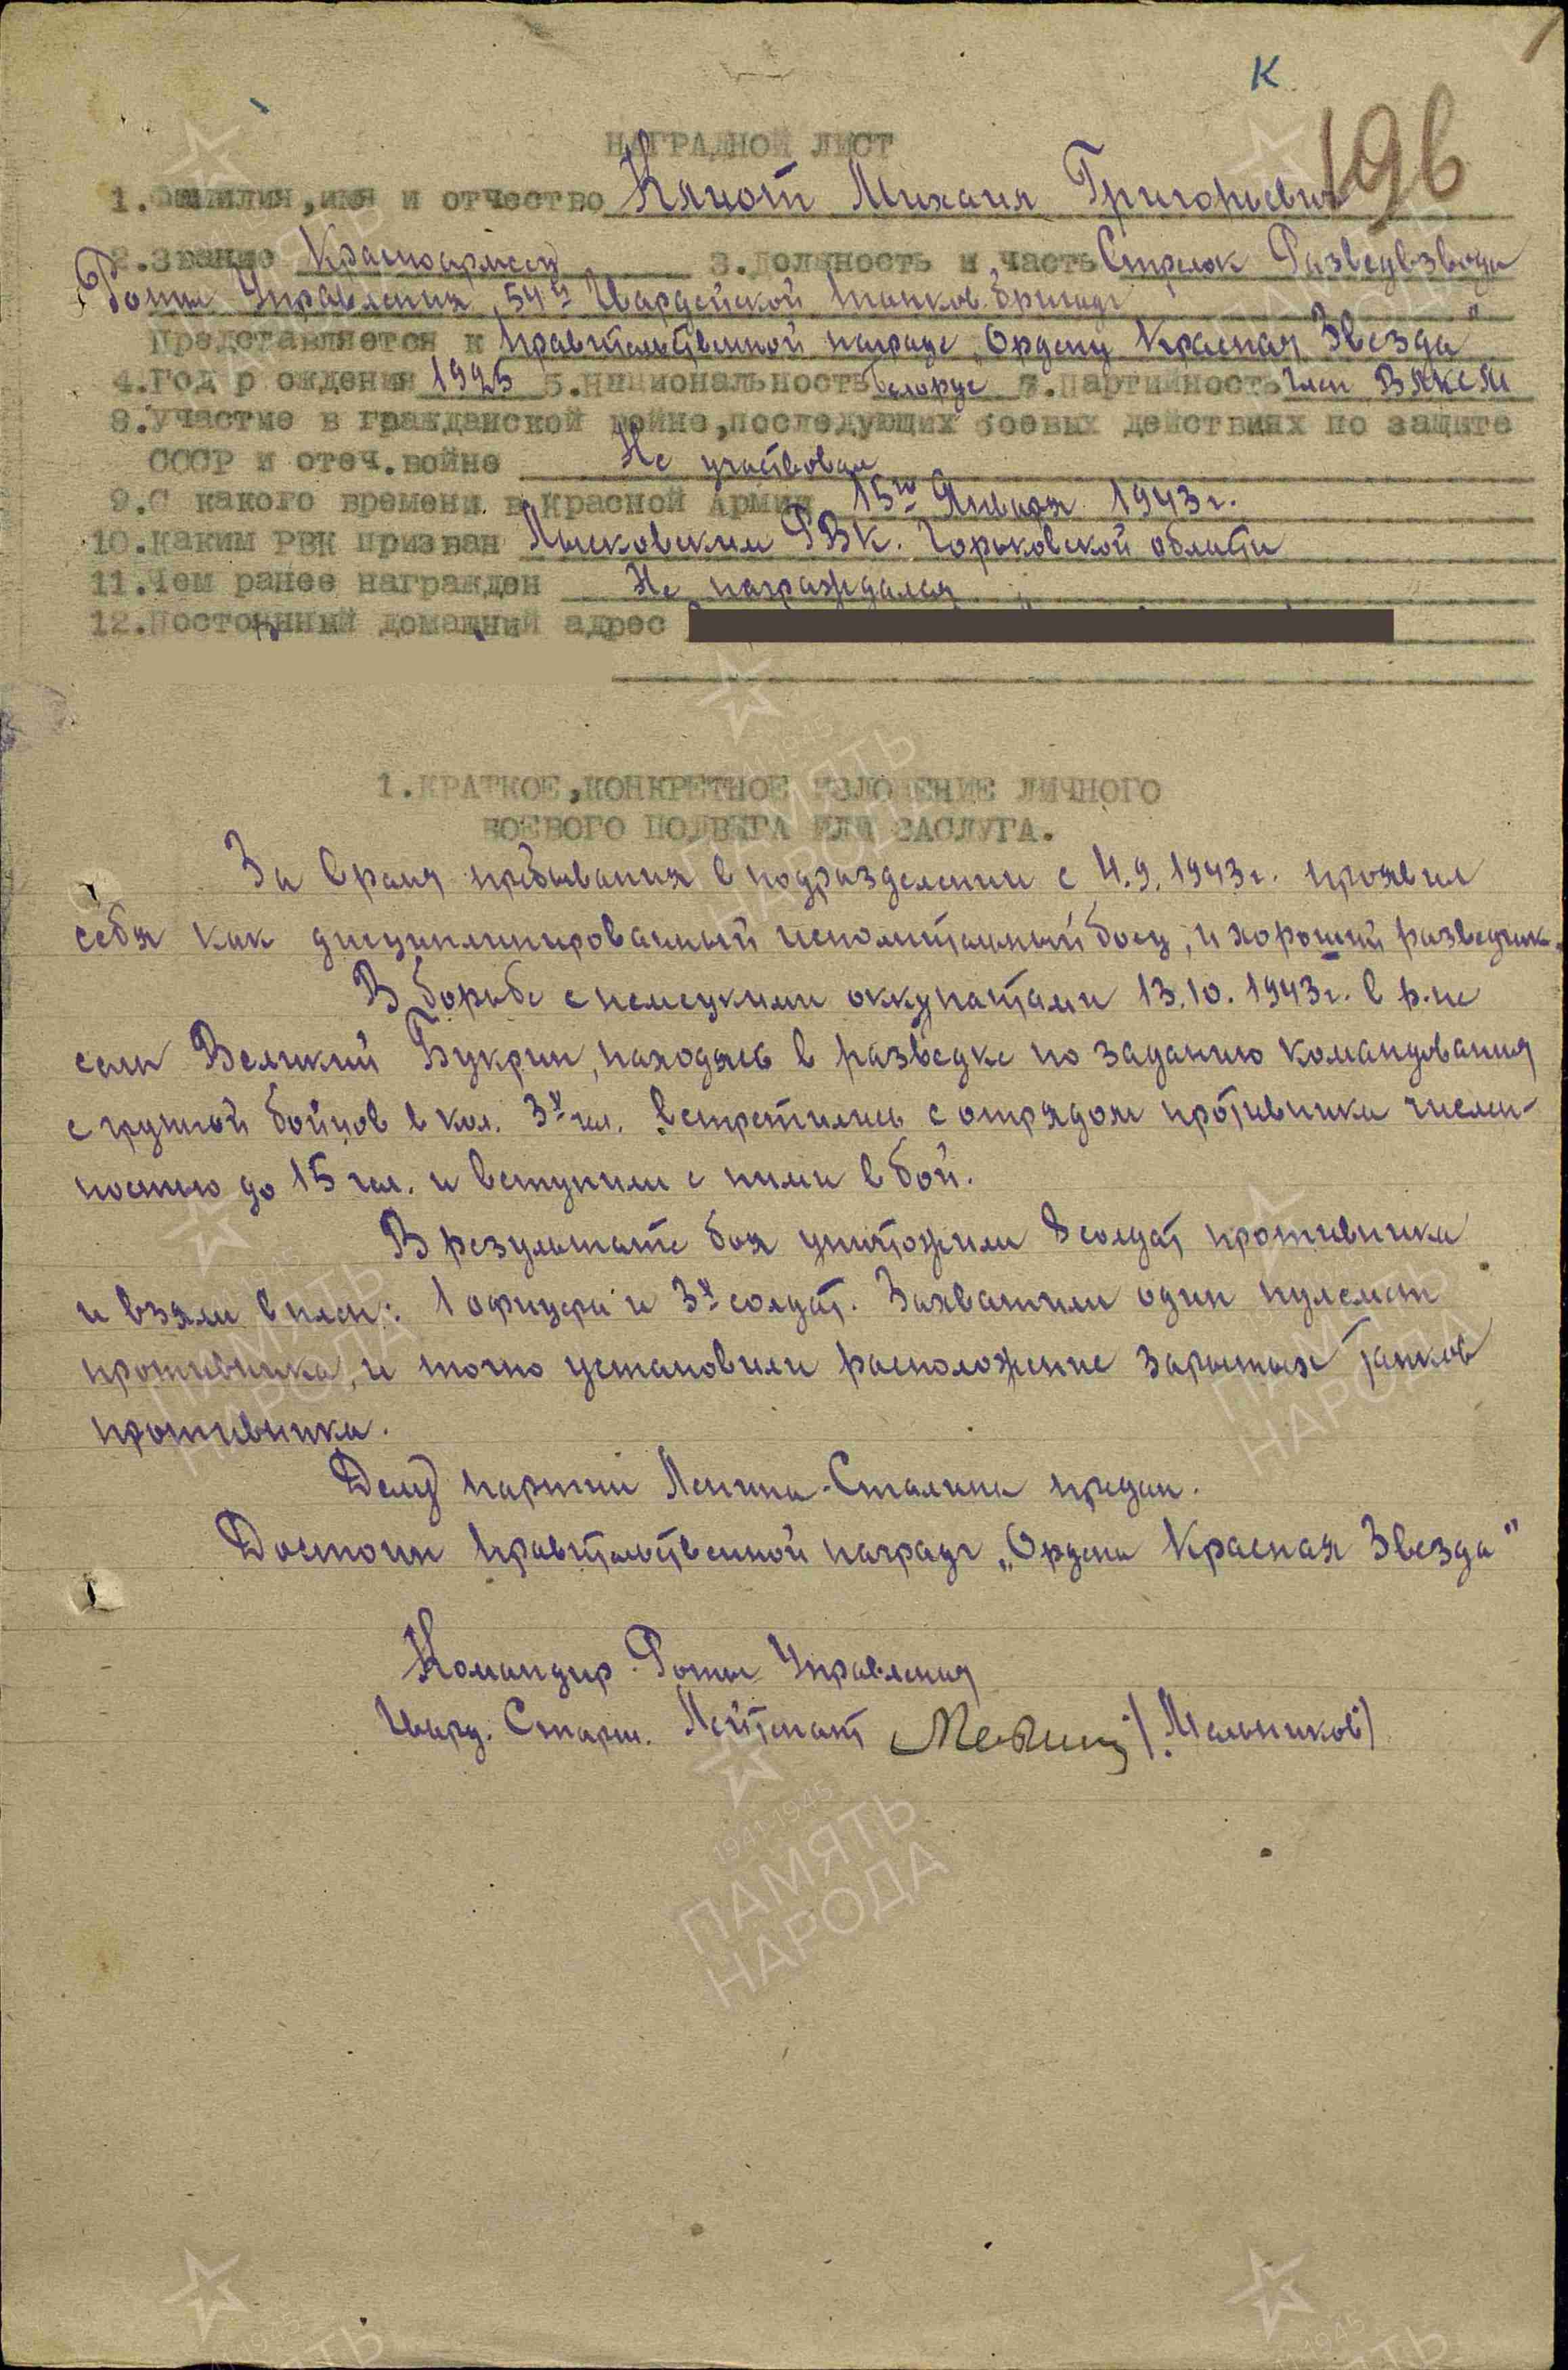 К
196
НАГРАДНОЙ ЛИСТ
1.Фамилия,имя и отчество Кляцот Михаил Григорьевич
2.Звание Красноармеец 3.Должность и часть Стрелок Разведвзвода
Роты Управления, 54й Гвардейской танков. бригады
Представляется к правительственной награде „Ордену Красная Звезда"
4.Год рождения 1925 5.Национальность белорус 7.Партийность член ВЛКСМ
8.Участие в гражданской войне,последующих боевых действиях по защите
СССР и отеч.войне Не участвовал
9.С какого времени в Красной Армии 15го Января 1943г.
10.Каким РВК призван Лысковским РВК. Горьковской области
11.Чем ранее награжден Не награждался
12.Постоянный домашний адрес
1.КРАТКОЕ,КОНКРЕТНОЕ ИЗЛОЖЕНИЕ ЛИЧНОГО
БОЕВОГО ПОДВИГА ИЛИ ЗАСЛУГА.
За время пребывания в подразделении с 4.9.1943г. проявил
себя как дисциплинированный исполнительный боец, и хороший разведчик.
В борьбе с немецкими оккупатами 13.10.1943г. в р-не
села Великий Букрин, находясь в разведке по заданию командования
с группой бойцов в кол. 3х чел. встретились с отрядом противника числен-
ностью до 15 чел. и вступили с ними в бой.
В результате боя уничтожили 8 солдат противника
и взяли в плен: 1 офицера и 3х солдат. Захватили один пулемет
противника, и точно установили расположение зарытых танков
противника.
Делу партии Ленина-Сталина предан.
Достоин правительственной награде „Ордена Красная Звезда"
Командир Роты Управления
Гвард. Старш. Лейтенант /Мельников/
1941-1945
ПАМЯТЬ
НАРОДА